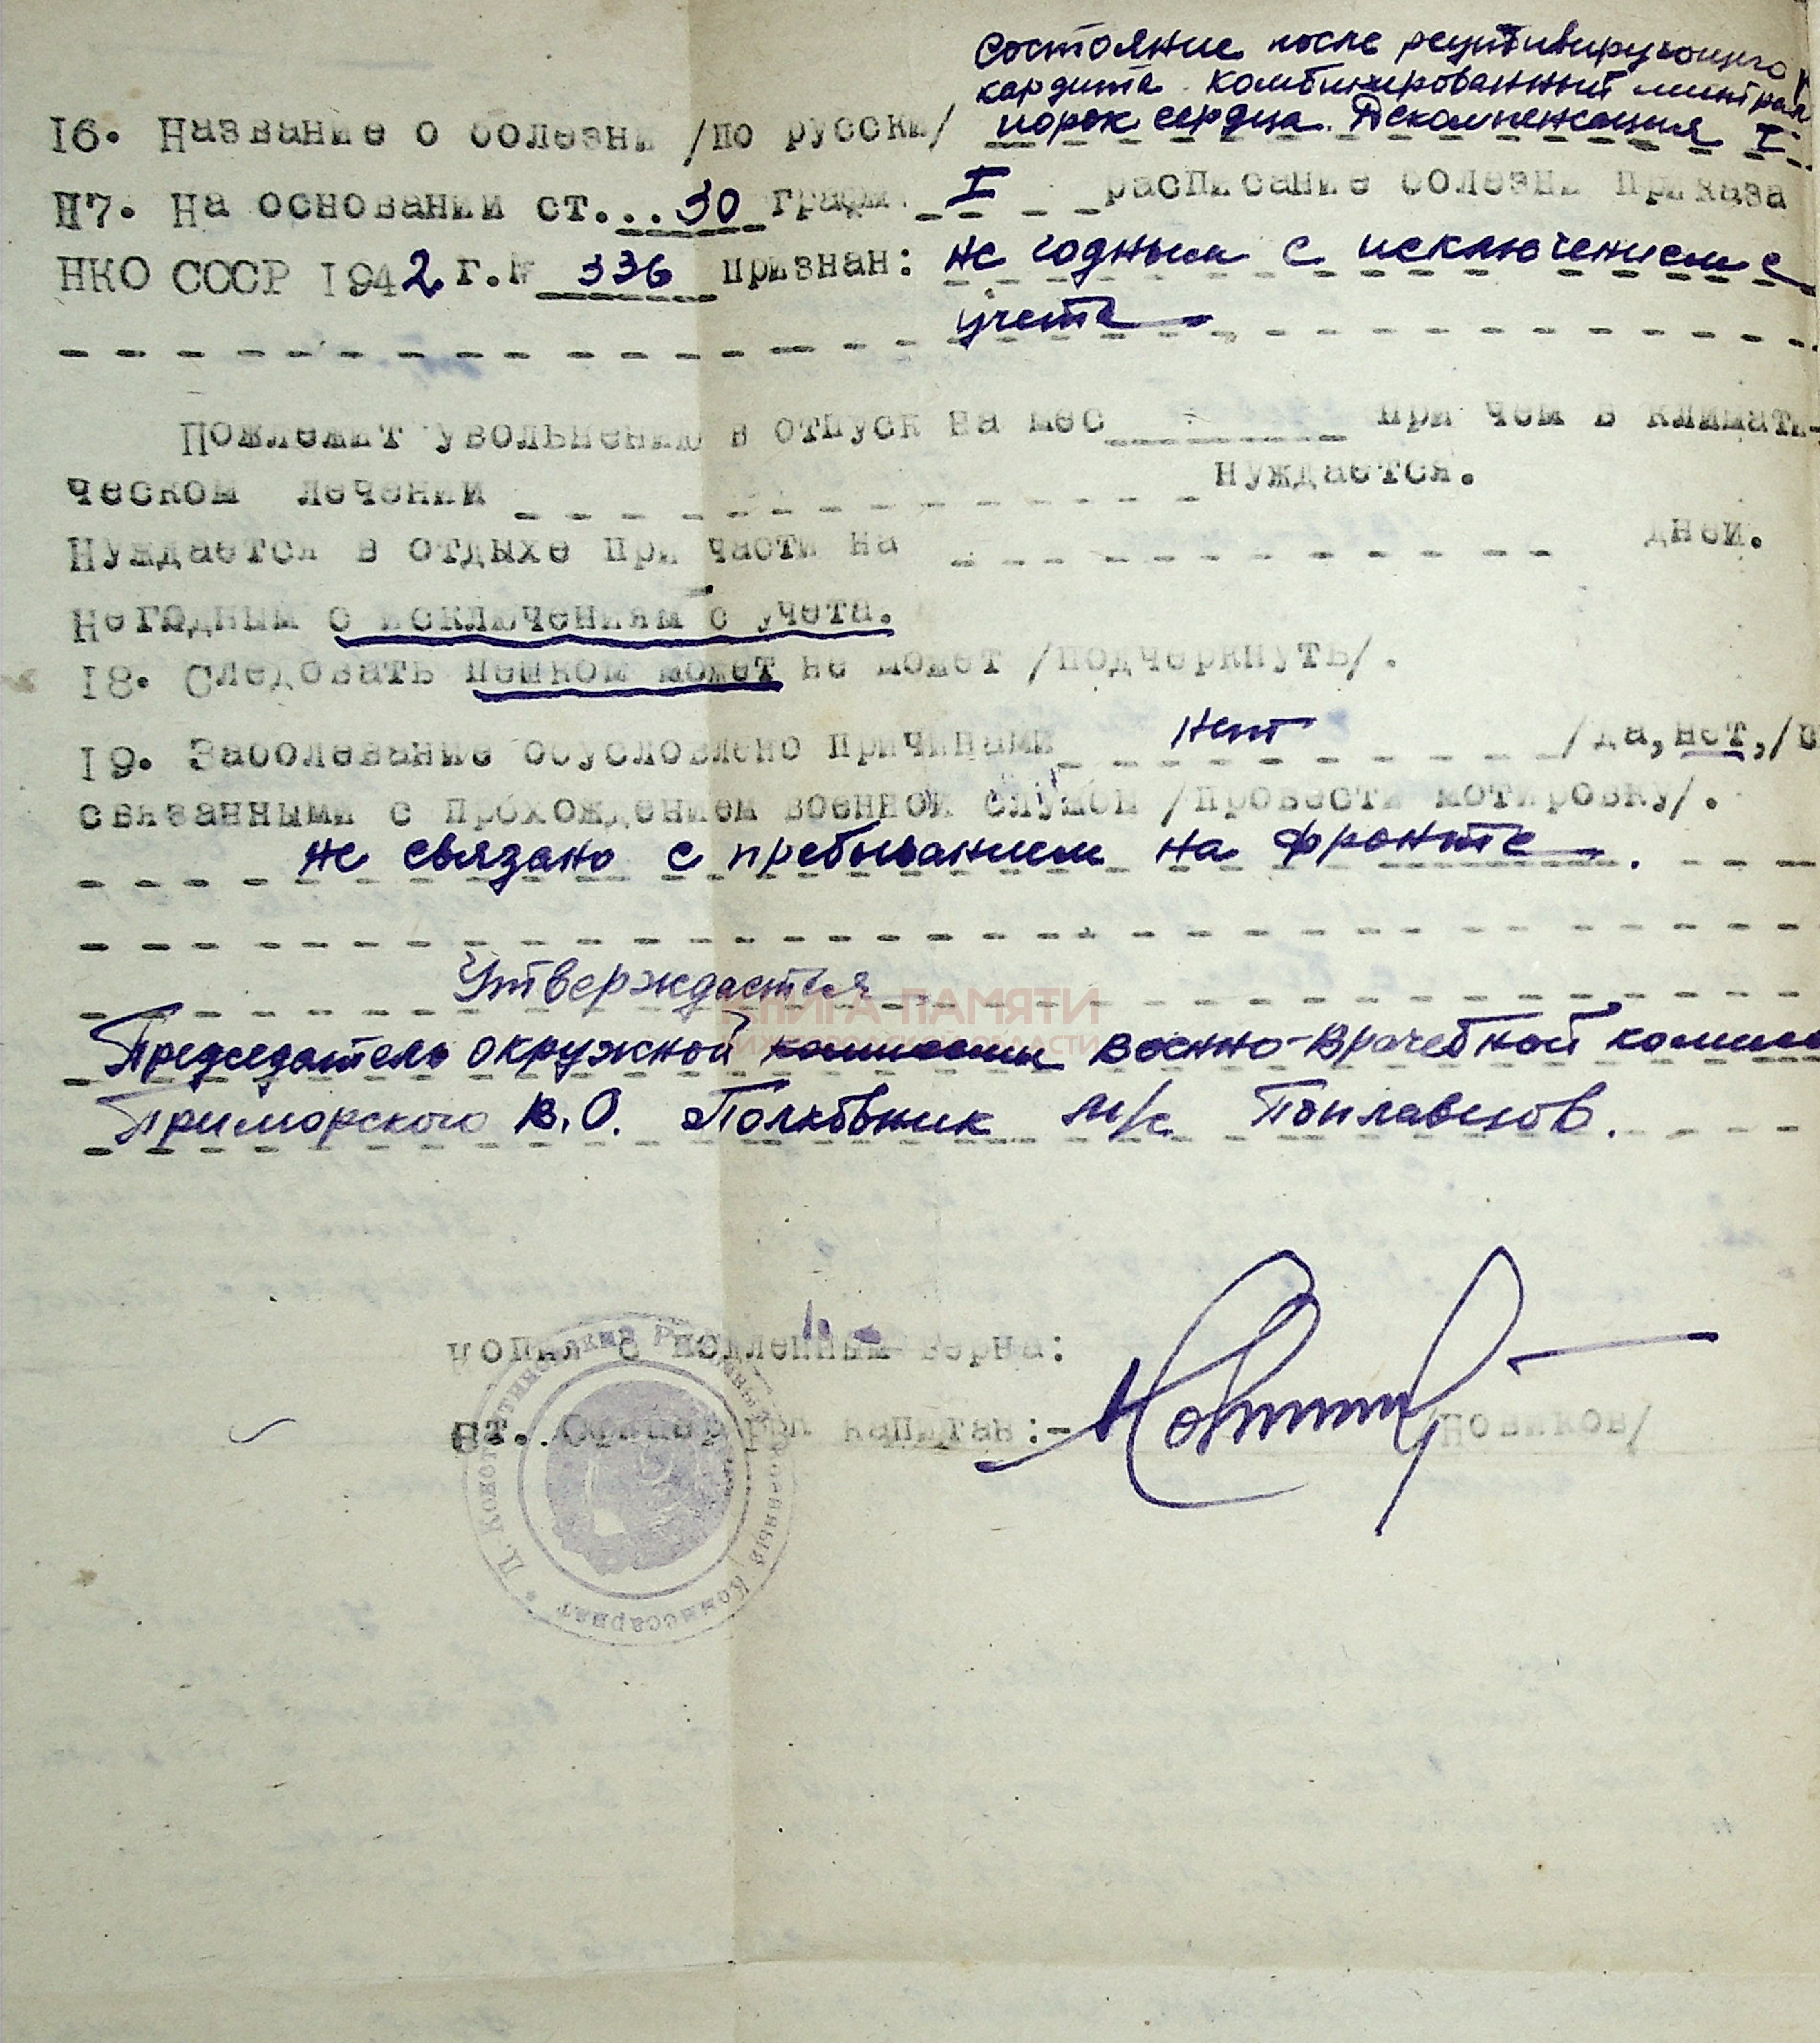 Состояние после рецидивирующего
кардита. Комбинированный митрал
16. Название о болезни /по русски/ порок сердца. Декомпенсация I.
П7. На основании ст...30 графы I расписание болезни приказа
НКО СССР 1942 г.№ 336 признан: не годным с исключением с
учета
Пожлежит увольнению в отпуск на мес при чем в климати-
ческом лечении нуждается.
Нуждается в отдыхе при части на дней.
Негодным с исключениям с учета.
18. Следовать пешком может не может /подчеркнуть/.
19. Заболевание осусловлено причинами нет /да, нет,/
связанными с прохождением военной службы /провести мотировку/.
не связано с пребыванием на фронте.
Утверждается
Председатель окружной комиссии военно-врачебной комисс
Приморского В.О. Полковник м/с Поплавсков.
КНИГА ПАМЯТИ
НИЖЕГОРОДСКОЙ ОБЛАСТИ
Копия с подленным верна:
Ст. Офицер капитан:- /Новиков/
Военный Комиссариат